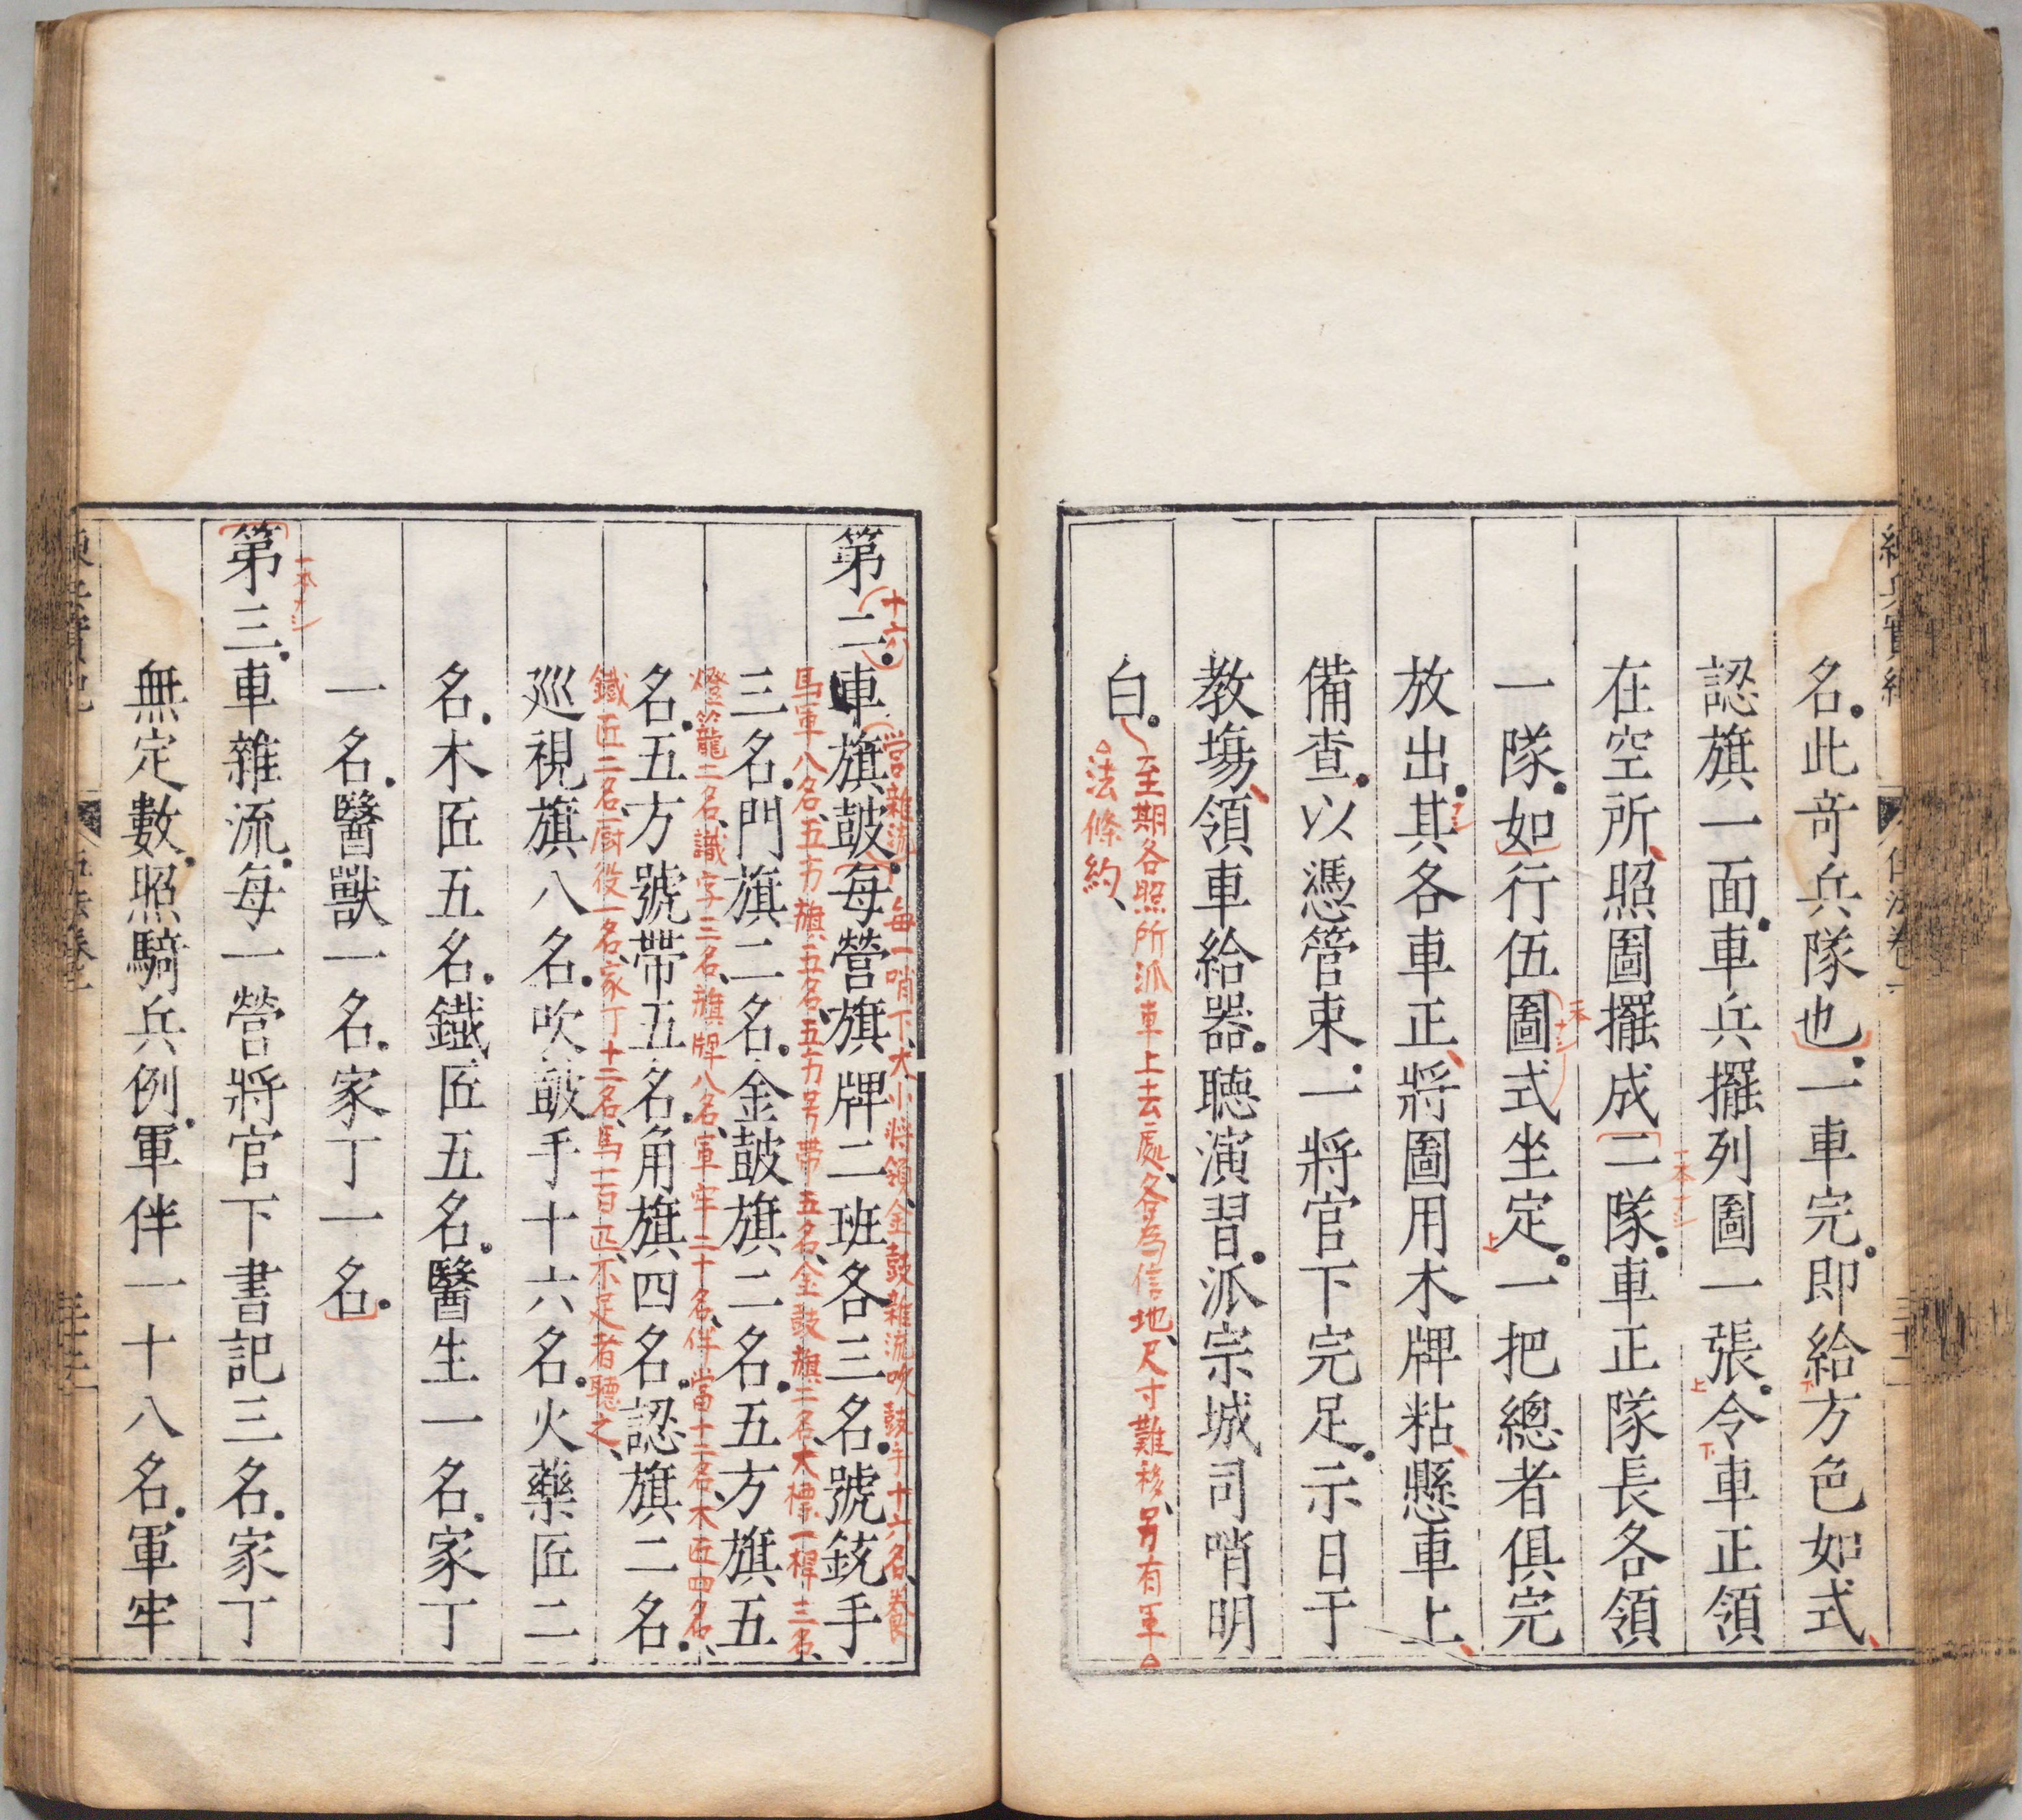 名此奇兵隊也一車完即給方色如式
認旗一面車兵擺列圖一張令車正領
一本ナシ
在空所照圖擺成二隊車正隊長各領
一本ナシ
一隊如行伍圖式坐定一把總者俱完
放出其各車正將圖用木牌粘懸車上
備查以憑管束一將官下完足示日于
教塲領車給器聽演習派宗城司哨明
白
至期各照所派車上去處各為信地尺寸難移另有軍
法條約
十六
營雜流
每一哨下大小將領金鼓雜流吹鼓手十六名養
第二車旗皷每營旗牌二班各三名號銃手
馬軍八名五方旗五名五方号帶五名金鼓旗二名大標一桿三名
三名門旗二名金皷旗二名五方旗五
燈籠二名識字三名旗牌八名軍牢二十名伴當十二名木匠四名
名五方號帶五名角旗四名認旗二名
鐵匠二名厨役一名家丁十二名馬一百匹不足者聽之
巡視旗八名吹皷手十六名火藥匠二
名木匠五名鐵匠五名醫生一名家丁
一名醫獸一名家丁一名
一本ナシ
第三車雜流每一營將官下書記三名家丁
無定數照騎兵例軍伴一十八名軍牢